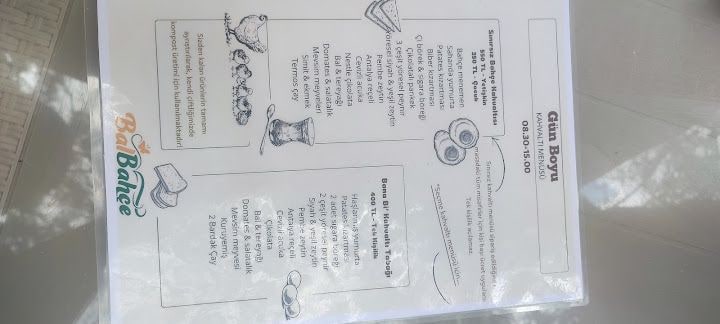 Gün Boyu
KAHVALTI MENÜSÜ
08.30-15.00
Sınırsız Bahçe Kahvaltısı
550 TL - Yetişkin
350 TL - Çocuk
Bahçe menemen
Sahanda yumurta
Patates kızartması
Biber kızartması
Çi börek & sigara böreği
Çikolatalı pankek
3 çeşit yöresel peynir
Yöresel siyah & yeşil zeytin
Pembe zeytin
Antalya reçeli
Cevizli acuka
Nestle çikolata
Bal & tereyağı
Domates & salatalık
Mevsim meyveleri
Simit & ekmek
Termos çay
Sınırsız kahvaltı menüsü sipariş edildiğinde,
masadaki tüm misafirler için kişi başı ücret uygulanır.
Tek kişilik açılamaz.
"Seçme kahvaltı menüsü için...
Bana Bi' Kahvaltı Tabağı
400 TL - Tek Kişilik
Haşlanmış yumurta
Patates kızartması
2 adet sigara böreği
2 çeşit yöresel peynir
Siyah & yeşil zeytin
Pembe zeytin
Antalya reçeli
Cevizli acuka
Çikolata
Bal & tereyağı
Domates & salatalık
Mevsim meyvesi
Kuruyemiş
2 Bardak Çay
Sizden kalan ürünlerin tamamı
ayrıştırılarak, kendi çiftliğimizde
kompost üretimi için kullanılmaktadır.
BalBahçe